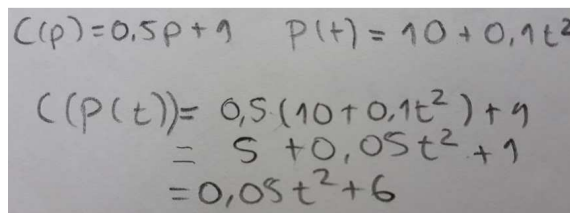 C(p)=0,5p+1 P(t)=10+0,1t²
C(P(t))= 0,5(10+0.1t²)+1
= 5+0,05t²+1
=0,05t²+6